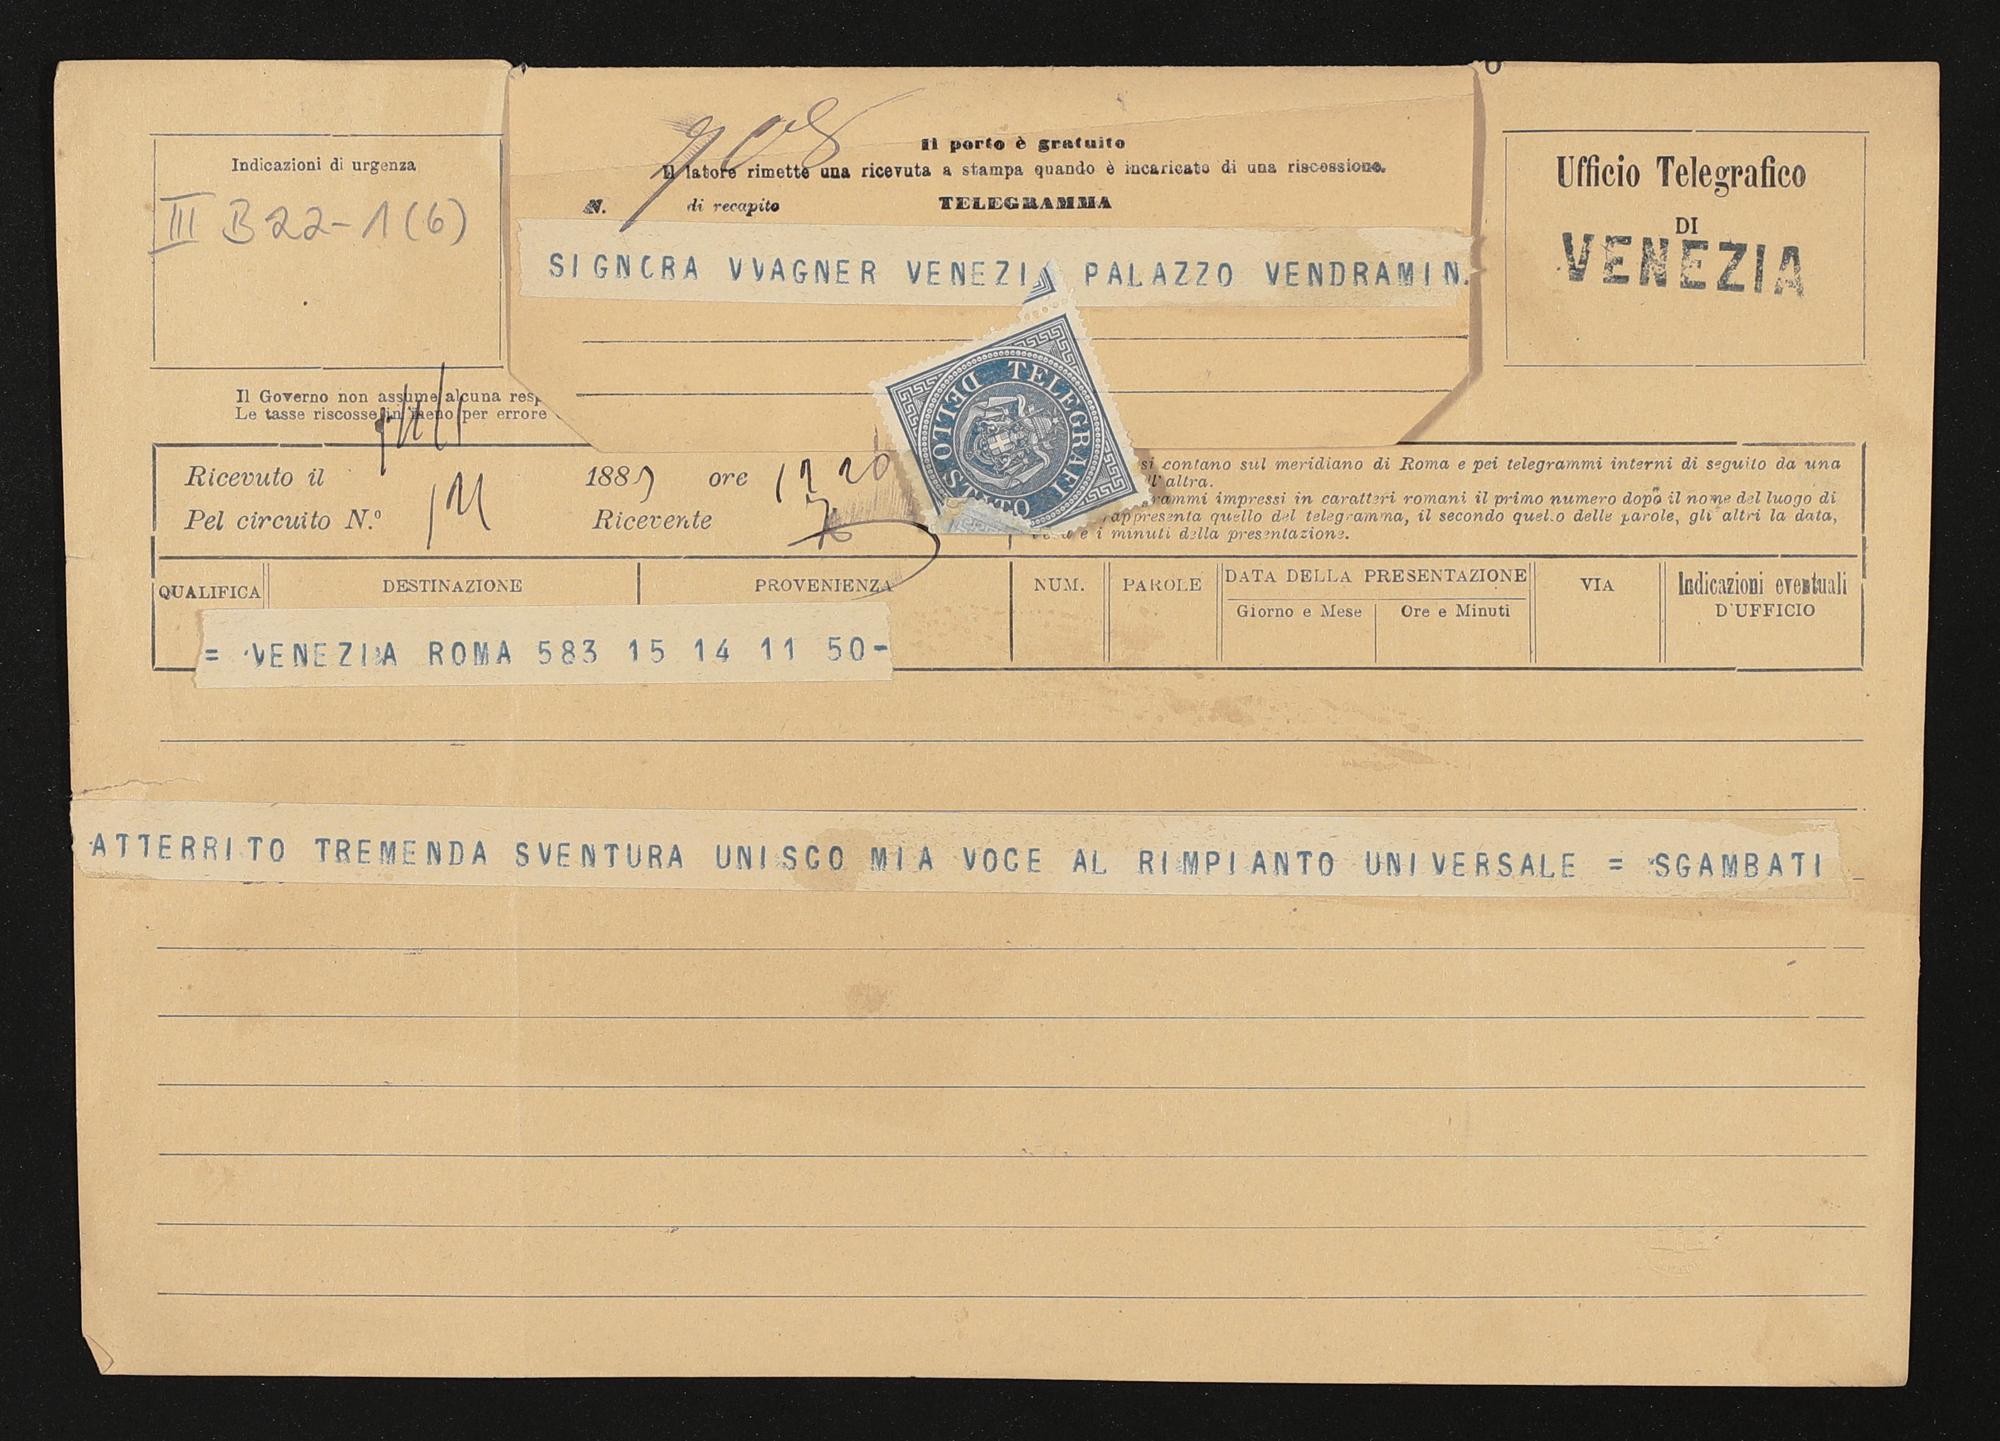 Indicazioni di urgenza
III B 22-1(6)
908
Il porto è gratuito
Il latore rimette una ricevuta a stampa quando è incaricato di una riscossione.
N. di recapito TELEGRAMMA
SIGNORA VVAGNER VENEZIA PALAZZO VENDRAMIN.
Ufficio Telegrafico
DI
VENEZIA
TELEGRAFI DELLO STATO
Il Governo non assume alcuna resp
Le tasse riscosse in meno per errore
Ricevuto il 188 ore
Pel circuito N.º Ricevente
si contano sul meridiano di Roma e pei telegrammi interni di seguito da una
all'altra.
grammi impressi in caratteri romani il primo numero dopo il nome del luogo di
rappresenta quello del telegramma, il secondo quello delle parole, gli altri la data,
e i minuti della presentazione.
QUALIFICA DESTINAZIONE PROVENIENZA NUM. PAROLE DATA DELLA PRESENTAZIONE VIA Indicazioni eventuali
Giorno e Mese Ore e Minuti D'UFFICIO
= VENEZIA ROMA 583 15 14 11 50-
ATTERRITO TREMENDA SVENTURA UNISCO MIA VOCE AL RIMPIANTO UNIVERSALE = SGAMBATI